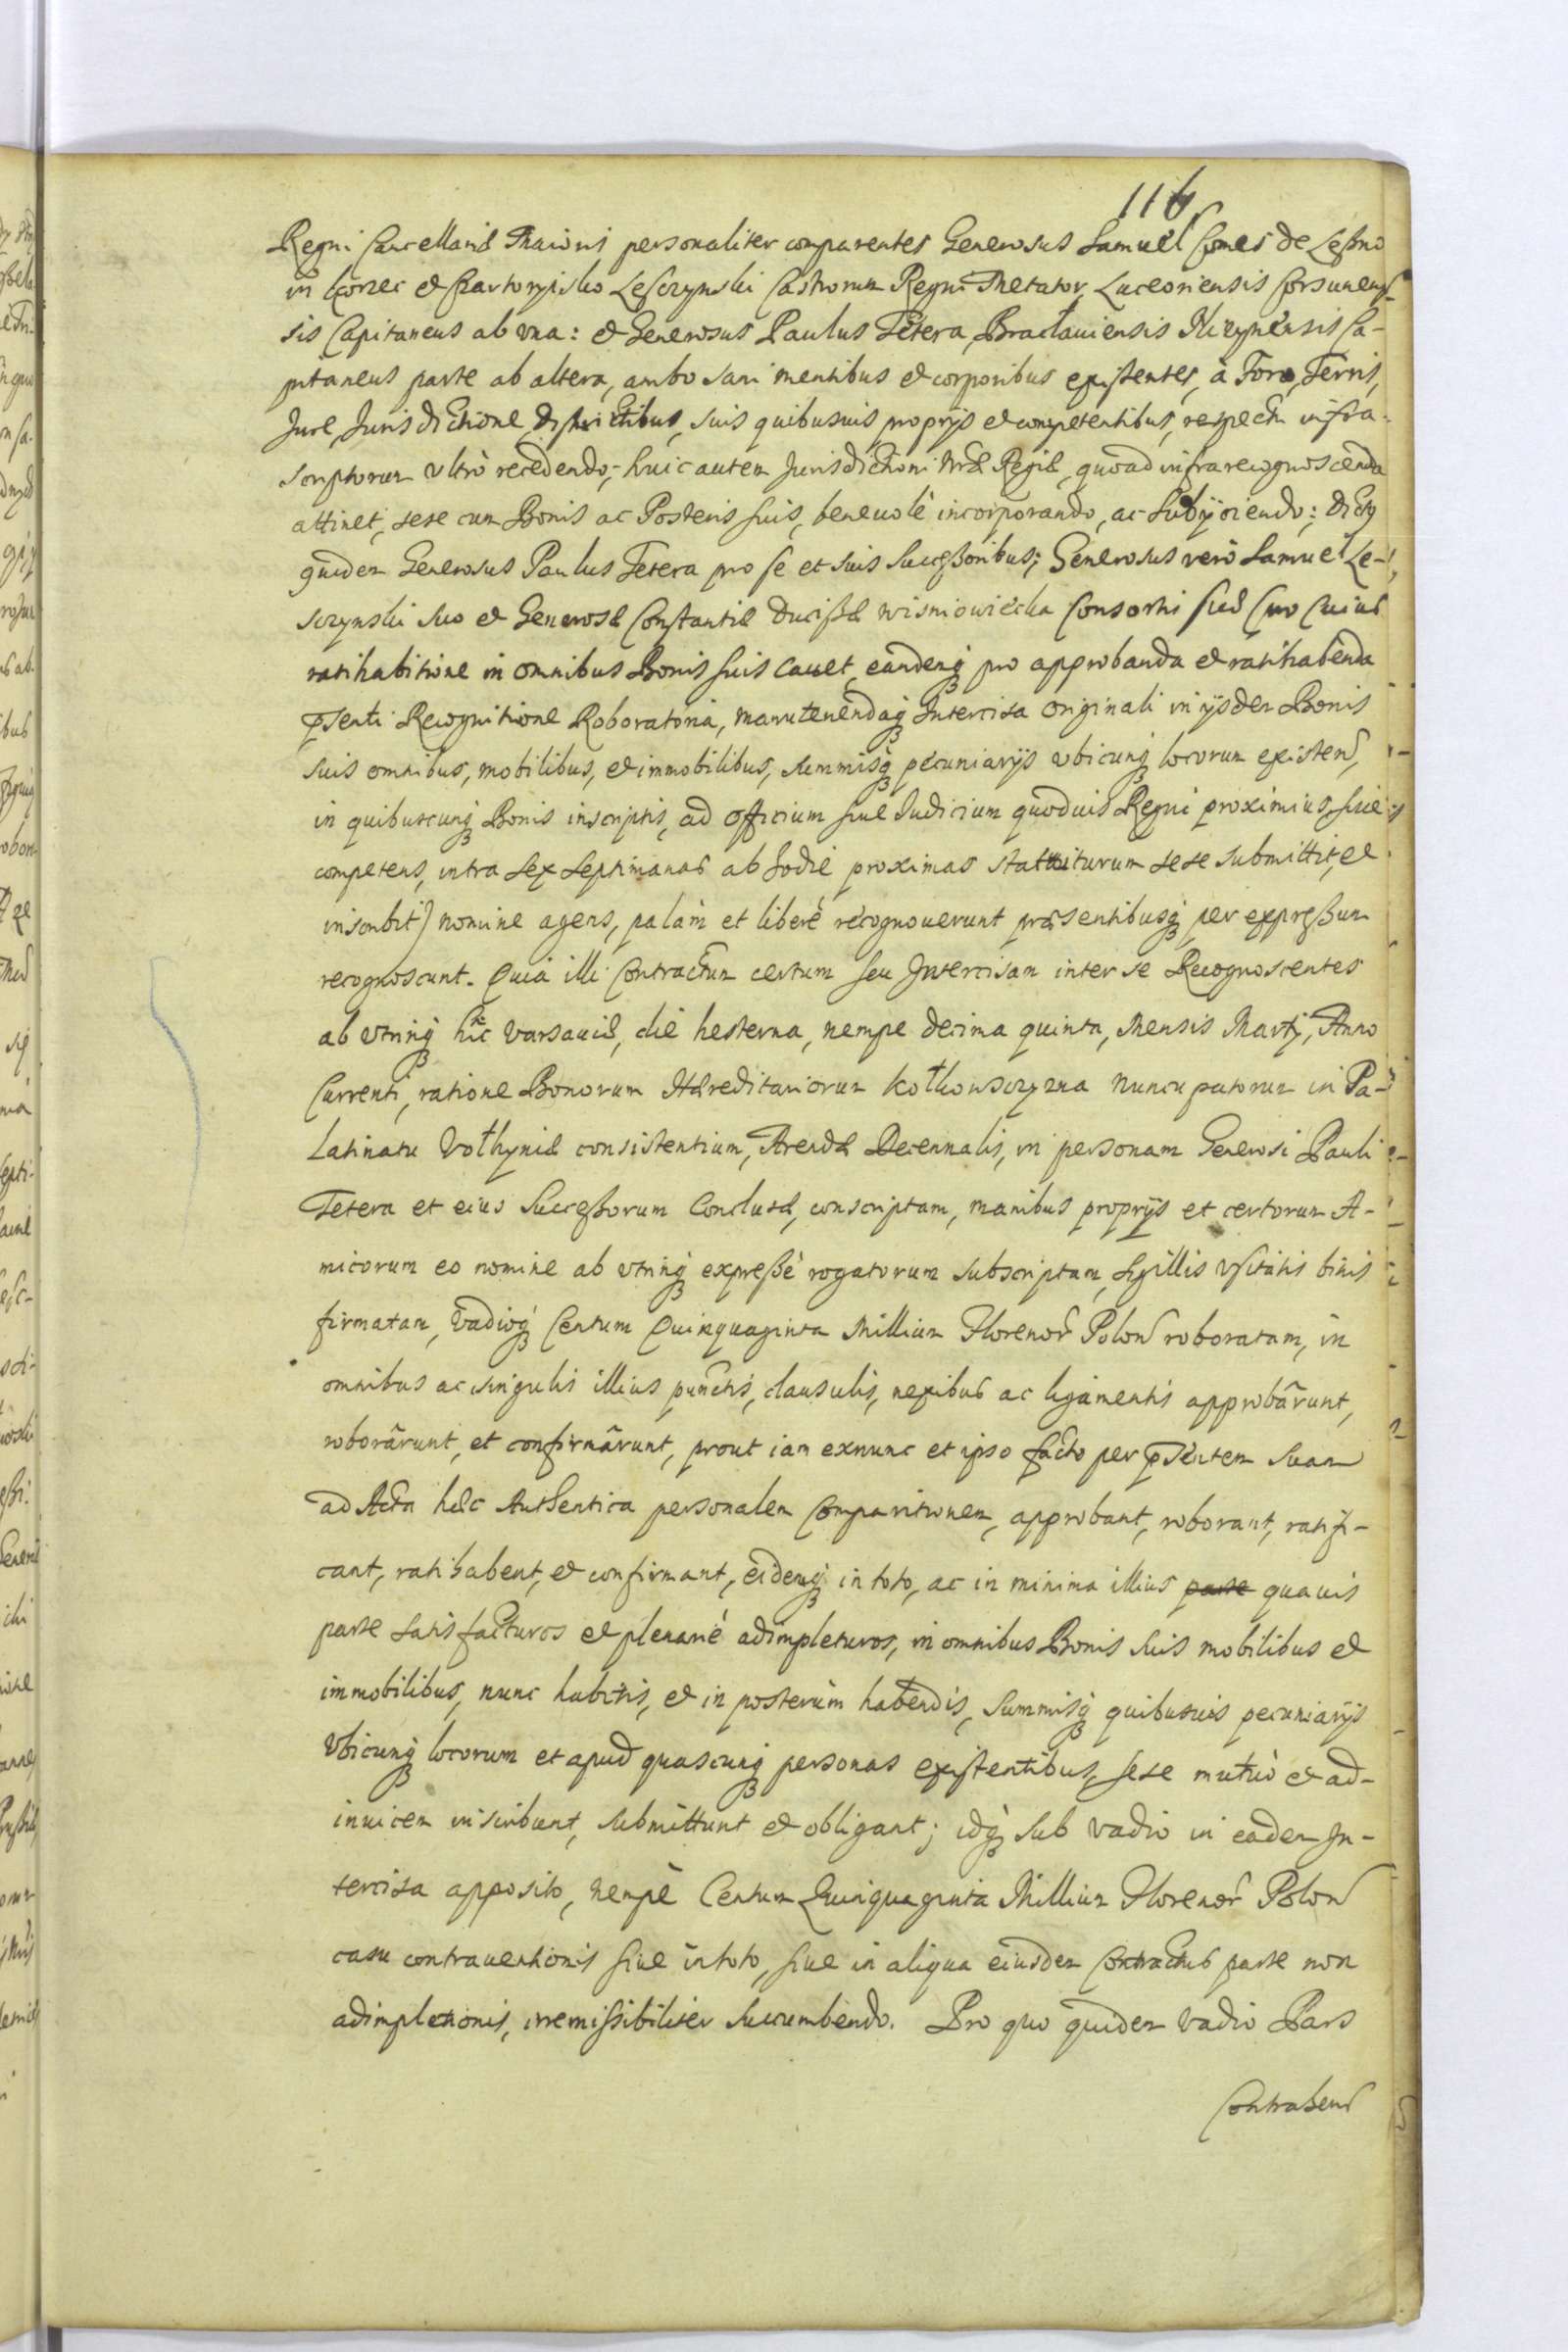 116
Regni Cancellariæ Maioris personaliter comparentes Generosus Samuel Comes de Leßno
in Korzec et Czartoryisko Lesczynski Castrorum Regni Metator, Luceoriensis Corsunen-
sis Capitaneus ab vna: et Generosus Paulus Tetera, Bracłauiensis Nizynensis Ca-
pitaneus parte ab altera, ambo sani mentibus et corporibus existentes, à Foro, Terris,
Jure, Jurisdictione, districtibus, suis quibusuis proprijs et competentibus, respectu infra-
scriptorum vltrò recedendo, huic autem Jurisdictioni nræ Regiæ, quoad infra recognoscenda
attinet, sese cum Bonis ac Posteris suis, beneuolè incorporando, ac Subijciendo: dictus
quidem Generosus Paulus Tetera pro se et suis Succeßoribus; Generosus verò Samuel Le-
sczynski suo et Generosæ Constantiæ Ducißæ Wisniowiecka Consortis suæ (pro cuius
ratihabitione in omnibus Bonis suis cauet, eandemq́ pro approbanda et ratihabenda
pñsenti Recognitione Roboratoria, manutenendaq́ Intercisa originali in ijsdem Bonis
suis omnibus, mobilibus, et immobilibus, summisq́ pecuniarijs vbicunq́ locorum existen,
in quibuscunq́ Bonis inscriptis, ad officium siue Judicium quoduis Regni proximius, siue
competens, intra sex septimanas ab hodie proximas statuiturum sese submittit, et
inscribit) nomine agens, palàm et liberè recognouerunt præsentibusq́ per expreßum
recognoscunt. Quià illi Contractum certum seu Intercisam inter se Recognoscentes
ab vtrinq́ hîc Varsauiæ, die hesterna, nempe decima quinta, Mensis Martij, Anno
Currenti, ratione Bonorum Hæreditariorum Kołkowsczyzna nuncupatorum in Pa-
latinatu Vołhyniæ consistentium, Arendæ Decennalis, in personam Generosi Pauli
Tetera et eius Succeßorum Conclusæ, conscriptam, manibus proprijs et certorum A-
micorum eo nomine ab vtrinq́ expreßè rogatorum subscriptam, sigillis vsitatis binis
firmatam, vadioq́ Centum Quinquaginta Millium Florenor Polon roboratam, in
omnibus ac singulis illius punctis, clausulis, nexibus ac ligamentis approbârunt,
roborârunt, et confirmârunt, prout iam exnunc et ipso facto per pñsentem suam
ad Acta hæc Authentica personalem Comparitionem, approbant, roborant, ratifi-
cant, ratihabent, et confirmant, eidemq́ in toto, ac in minima illius parte quauis
parte satisfacturos et plenariè adimpleturos, in omnibus Bonis suis mobilibus et
immobilibus, nunc habitis, et in posterùm habendis, summisq́ quibusuis pecuniarijs
vbicunq́ locorum et apud quascunq́ personas existentibus, sese mutuò et ad-
inuicem inscribunt, submittunt et obligant; idq́ sub vadio in eadem In-
tercisa apposito, nempè Centum Quinquaginta Millium Florenor Polon
casu contrauentionis siue in toto, siue in aliqua eiusdem Contractus parte non
adimpletionis, irremissibiliter succumbendo. Pro quo quidem vadio Pars
Contrahens